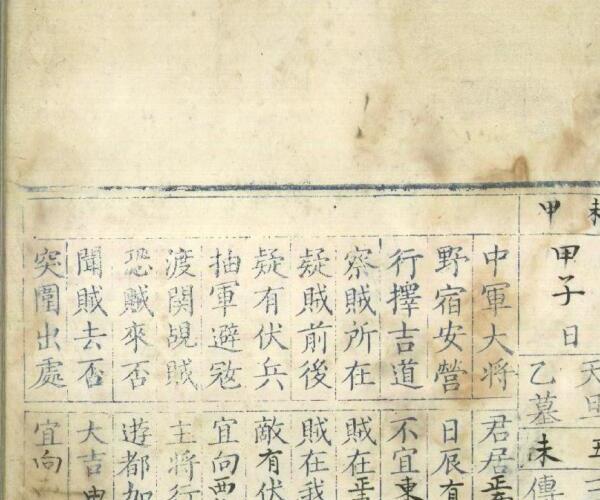 甲
甲子日
乙墓未傳
中軍大將
君居
野宿安營
日辰有
行擇吉道
不宜東
察賊所在
賊在正
疑賊前後
賊在我
疑有伏兵
敵有伏
抽軍避㓂
宜向西
渡関覘賊
主將行
恐賊來否
遊都加
聞賊去否
大吉
突圍出處
宜向